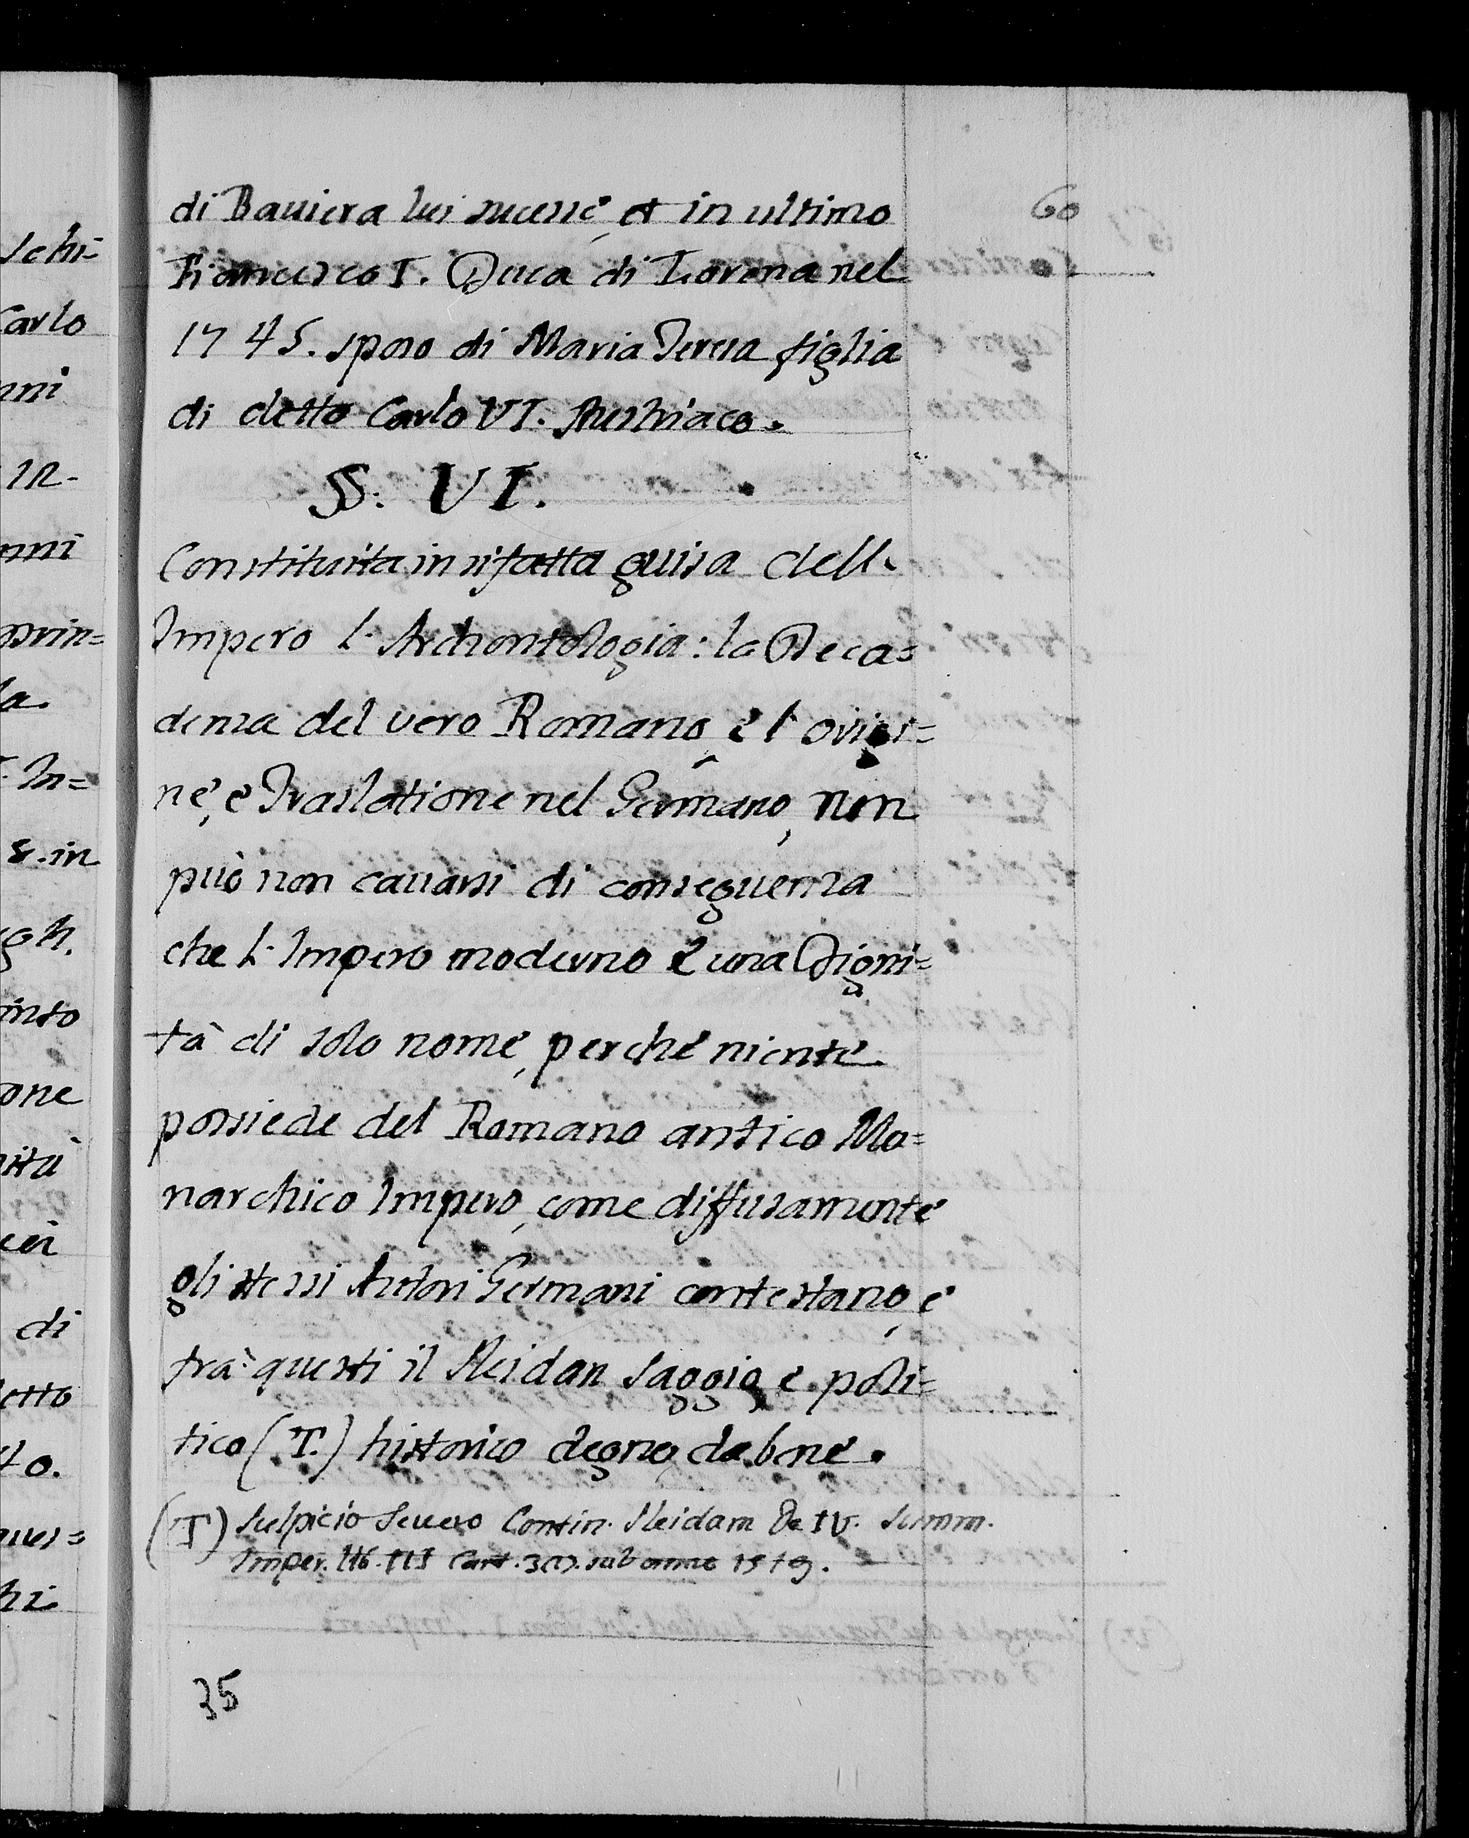 60
di Bauiera lui sucesse, et in ultimo
Francesco I. Duca di Lorena nel
1745. sposo di Maria Teresa figlia
di detto Carlo VI. Austriaco.
§: VI.
Constituita in sifatta guisa dell'
Impero l'Archontologia: la Deca=
denza del vero Romano, e l'origi=
ne, e Traslatione nel Germano, non
può non cauarsi di conseguenza
che l'Impero moderno è una Digni=
tà di solo nome, perche niente
possiede del Romano antico Mo=
narchico Impero, come diffusamente
gli stessi Autori Germani contestano, e
trà questi il Sleidan saggio, e poli=
tico (T.) historico degno da bene.
(T) Sulpicio Seuero Contin. Sleidam De IV. Summ.
Imper. lib. III Cart. sub anno 1519.
35
schi-
Carlo
nni
in-
nni
prin=
la
In=
8. in
gh.
into
one
ità
di
etto
to.
hi